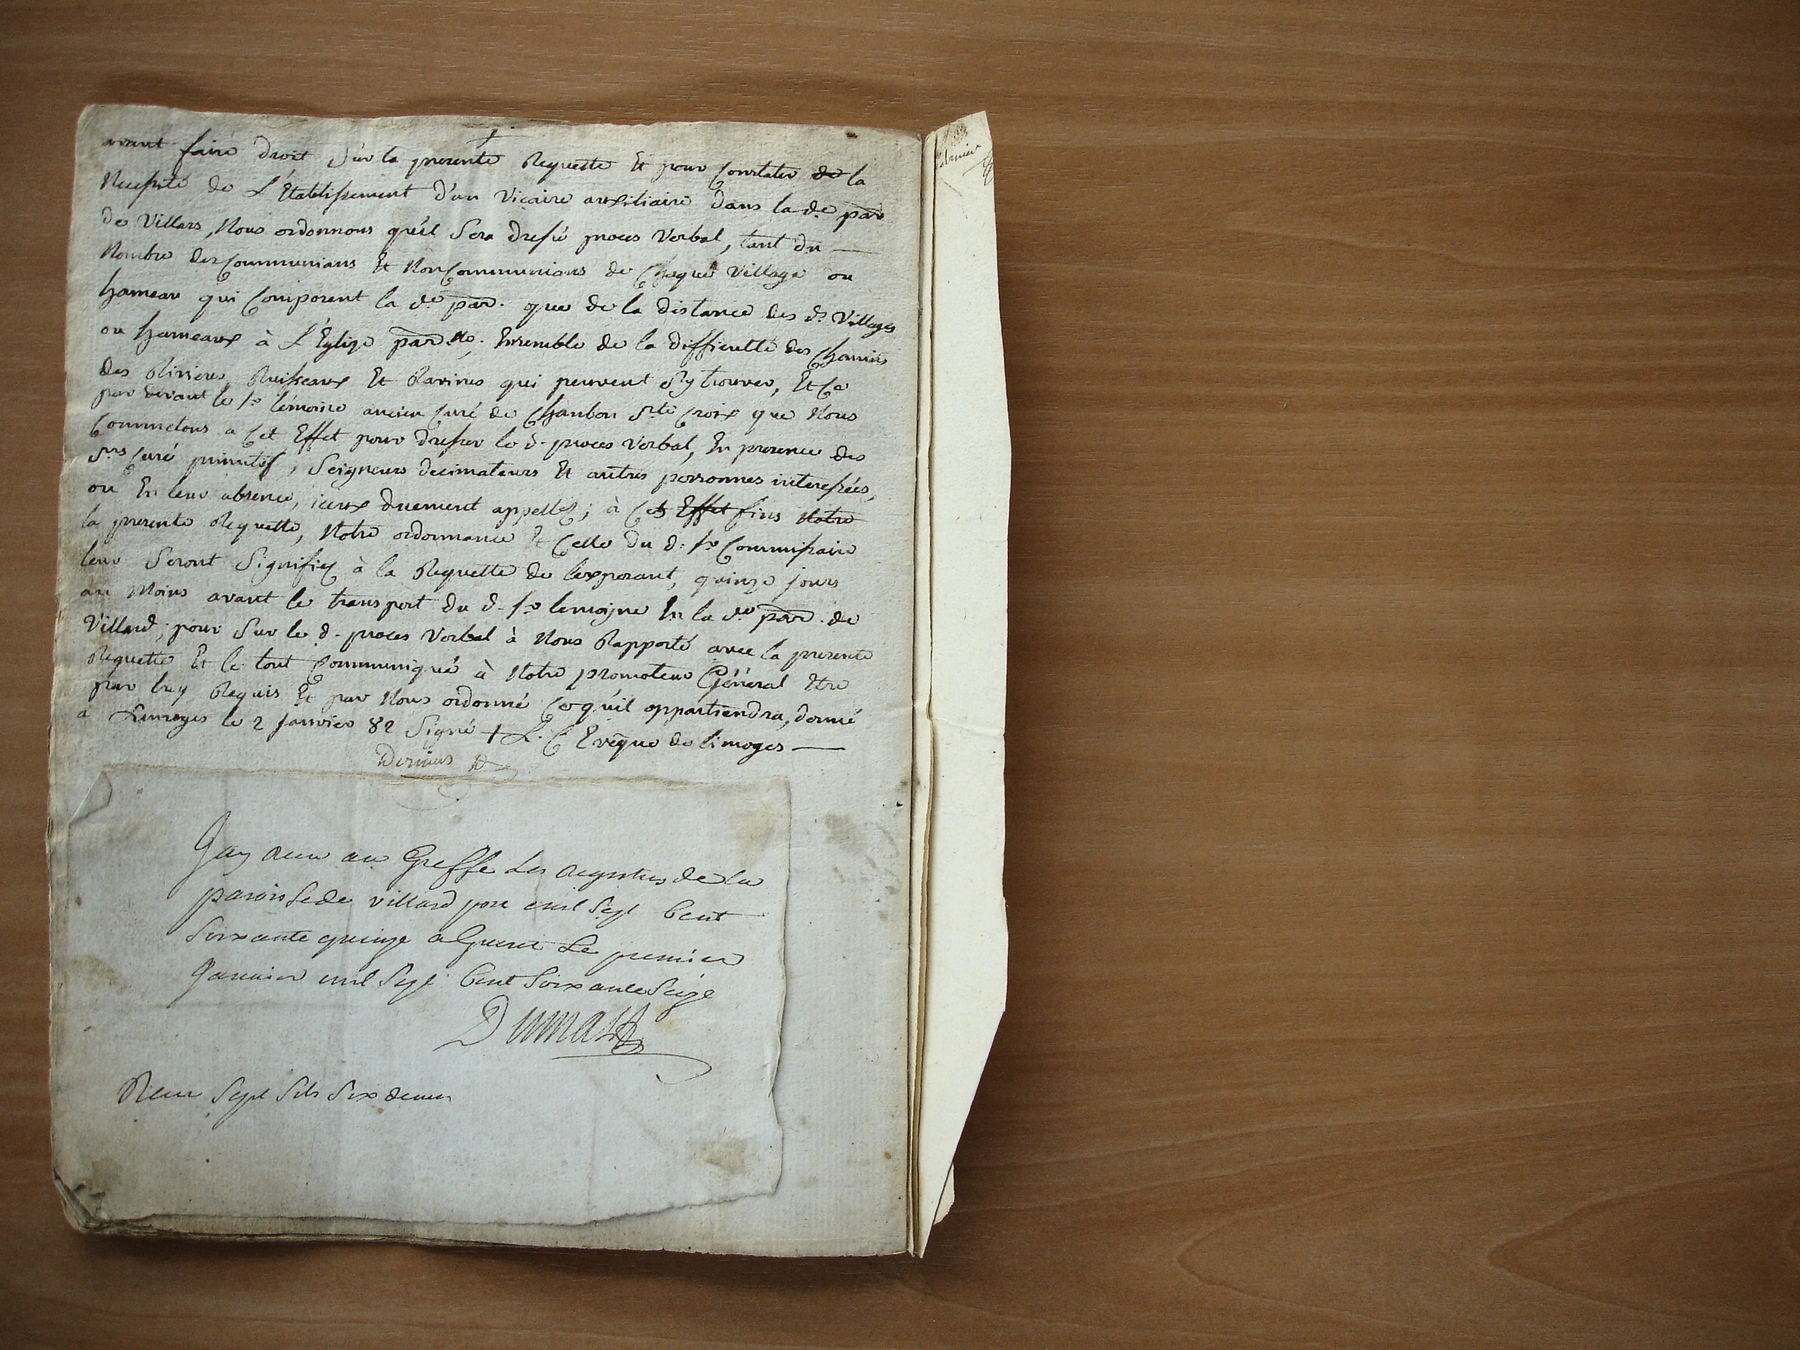 avant faire droit Sur la presente Requette Et pour Constater de la
Necessité de L'Etablissement d'un Vicaire auxiliaire dans la de par
de Villars, Nous ordonnons qu'il Sera dressé proces Verbal, tant du
Nombre des Communians Et Non Communians de Chaque Village ou
hameau qui Composent la de par. que de la distance des ds Villages
ou hameaux à L'Eglize par.lle. Ensemble de la difficulté des Chemins
des Rivieres, Ruisseaux Et Ravines qui peuvent s'y trouver, Et Ce
par devant le Sr lemoine ancien Curé de Chanbon Ste Croix que Nous
Commetons a Cet Effet pour dresser le d. proces Verbal, En presence des
Srs Curé primitif, Seigneurs decimateurs Et autres personnes interessées,
ou En leur absence, iceux duement appellez; à Cet Effet fins Notre
la presente Requette, Notre ordonnance Et Celle du d. Sr Commissaire
leur Seront Signifiez à la Requette de l'exposant, quinze jours
au Moins avant le transport du d. Sr lemoine En la de par. de
Villard; pour Sur le d. proces Verbal à Nous Rapporté avec la presente
Requette Et le tout Communiqué à Notre promoteur Général Etre
par luy Requis Et par Nous ordonné Ce qu'il appartiendra, donné
a Limoges le 2 Janvier 82 Signé + L. C Evêque de limoges
Jay recu au Greffe Les registres de la
paroisse de villard pour mil Sept Cent
Soixante quinze a Gueret Le premier
Janvier mil Sept Cent Soixante Seize
Dumas
Recu Sept Sols Six denier